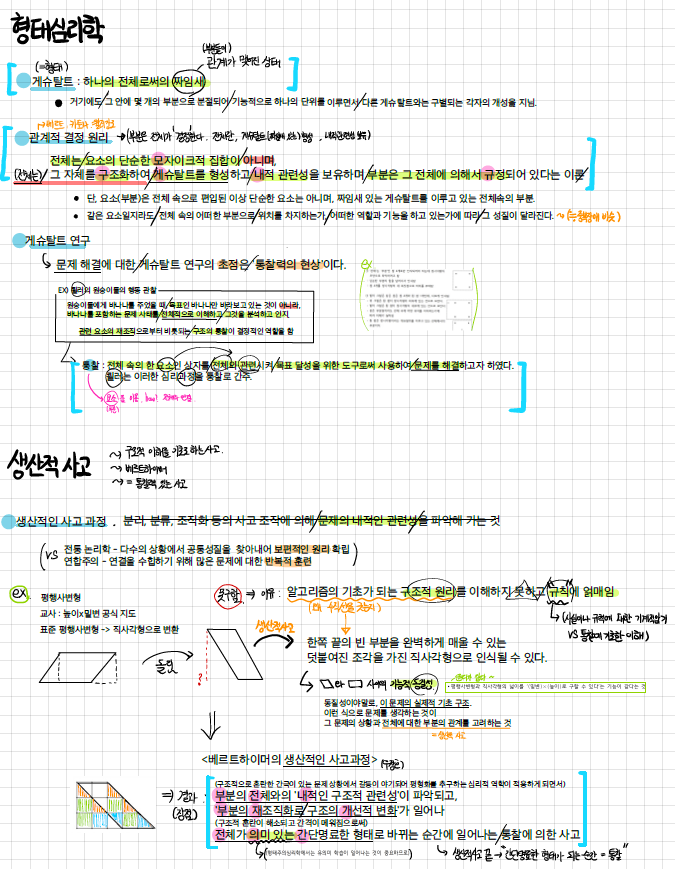 형태심리학
(부분들이)
관계가 맺어진 상태
(=형태)
게슈탈트 : 하나의 전체로써의 짜임새
● 거기에도 그 안에 몇 개의 부분으로 분절되어 기능적으로 하나의 단위를 이루면서 다른 게슈탈트와는 구별되는 각자의 개성을 지님.
관계적 결정 원리
전체는 요소의 단순한 모자이크적 집합이 아니며,
(전체는) 그 자체를 구조화하여 게슈탈트를 형성하고 내적 관련성을 보유하며 부분은 그 전체에 의해서 규정되어 있다는 이론
• 단, 요소(부분)은 전체 속으로 편입된 이상 단순한 요소는 아니며, 짜임새 있는 게슈탈트를 이루고 있는 전체속의 부분.
• 같은 요소일지라도 전체 속의 어떠한 부분으로 위치를 차지하는가, 어떠한 역할과 기능을 하고 있는가에 따라 그 성질이 달라진다.
게슈탈트 연구
문제 해결에 대한 게슈탈트 연구의 초점은 '통찰력의 현상'이다.
ex
EX) 쾰러의 원숭이들의 행동 관찰
원숭이들에게 바나나를 주었을 때, 목표인 바나나만 바라보고 있는 것이 아니라,
바나나를 포함하는 문제 사태를 전체적으로 이해하고 그것을 분석하고 인지
관련 요소의 재조직으로부터 비롯되는 구조의 통찰이 결정적인 역할을 함
통찰 : 전체 속의 한 요소인 상자를 전체와 관련시켜 목표 달성을 위한 도구로써 사용하여 문제를 해결하고자 하였다.
쾰러는 이러한 심리과정을 통찰로 간주.
생산적 사고
~> 구조적 이해를 이루도록 하는 사고.
~> 베르트하이머
~> = 통찰력 있는 사고
생산적인 사고 과정 . 분리, 분류, 조직화 등의 사고 조작에 의해 문제의 내적인 관련성을 파악해 가는 것
vs 전통 논리학 - 다수의 상황에서 공통성질을 찾아내어 보편적인 원리 확립
연합주의 - 연결을 수합하기 위해 많은 문제에 대한 반복적 훈련
ex 평행사변형
교사 : 높이x밑변 공식 지도
표준 평행사변형 -> 직사각형으로 변환
돌림
?
못구함 => 이유 : 알고리즘의 기초가 되는 구조적 원리를 이해하지 못하고 규칙에 얽매임
생산적사고
한쪽 끝의 빈 부분을 완벽하게 매울 수 있는
덧붙여진 조각을 가진 직사각형으로 인식될 수 있다.
와 사이의 기능적 동질성
• 평행사변형과 직사각형의 넓이를 '(밑변)×(높이)로 구할 수 있다'는 기능이 같다는 것
동질성이야말로, 이 문제의 실제적 기초 구조.
이런 식으로 문제를 생각하는 것이
그 문제의 상황과 전체에 대한 부분의 관계를 고려하는 것
= 생산적 사고
<베르트하이머의 생산적인 사고과정>
=> 결과 :
(구조적으로 혼란한 간극이 있는 문제 상황에서 갈등이 야기되어 평형화를 추구하는 심리적 역학이 적용하게 되면서)
부분의 전체와의 '내적인 구조적 관련성'이 파악되고,
'부분의 재조직화로 구조의 개선적 변화'가 일어나
(구조적 혼란이 해소되고 간격이 메워짐으로써)
전체가 의미 있는 간단명료한 형태로 바뀌는 순간에 일어나는 통찰에 의한 사고
(형태주의심리학에서는 유의미 학습이 일어나는 것이 중요하므로)